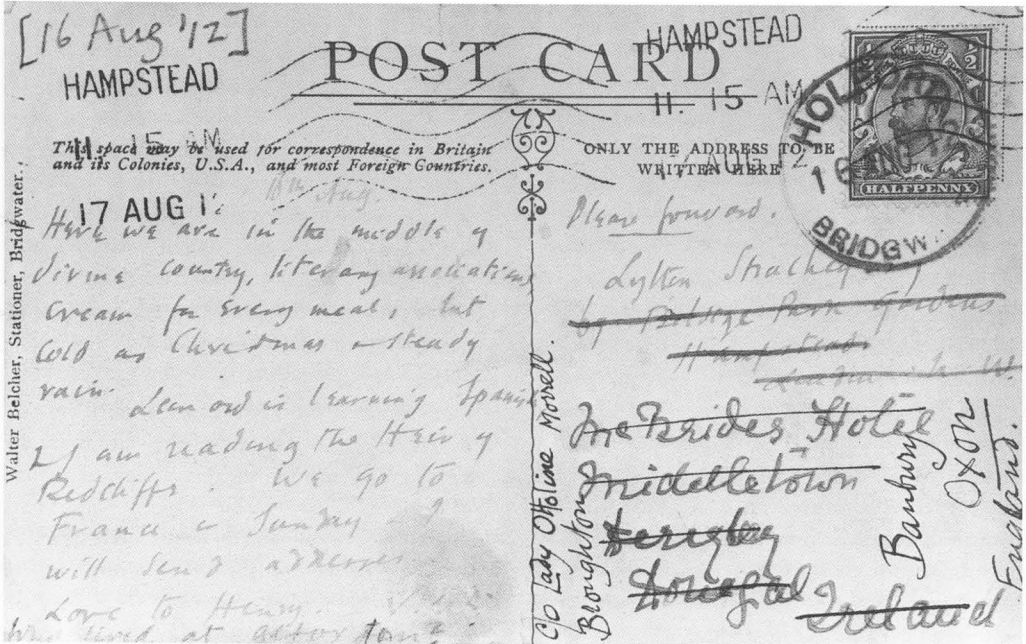 [16 Aug '12]
HAMPSTEAD
11. 15 AM
17 AUG 1
POST CARD
HAMPSTEAD
11. 15 AM
17 AUG 12
HOLFORD
16 AU 12
BRIDGW
HALFPENNY
This space may be used for correspondence in Britain
and its Colonies, U.S.A., and most Foreign Countries.
ONLY THE ADDRESS TO BE
WRITTEN HERE
Walter Belcher, Stationer, Bridgwater.
16th Aug.
Here we are in the middle of
divine country, literary associations
cream for every meal, but
cold as Christmas & steady
rain. Leonard is learning Spanish
& I am reading the Heir of
Redcliffe. We go to
France on Sunday - I
will send addresses
Love to Henry. V.
Who lived at
Please forward.
Lytton Strachey
Belsize Park Gardens
Hampstead
London N. W.
McBrides Hotel
Middletown
Derrybeg
Donegal
Ireland
c/o Lady Ottoline Morrell.
Broughton
Banbury
Oxon
England.